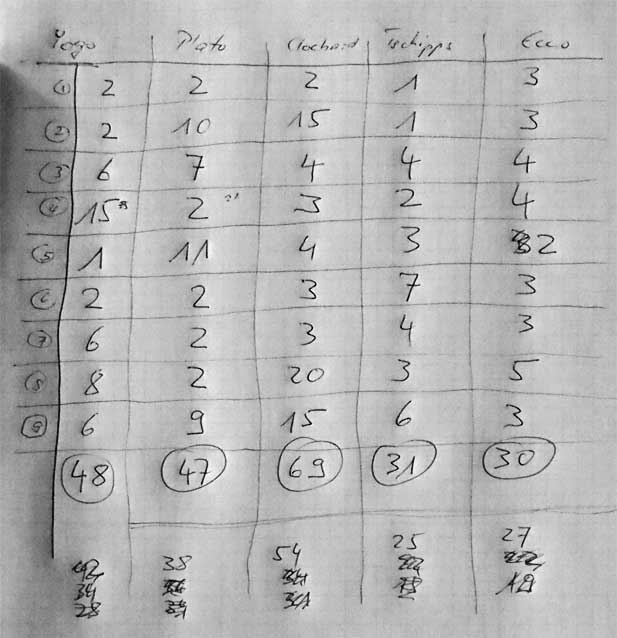 Yogo Plato Clochard Tschipps Ecco
① 2 2 2 1 3
② 2 10 15 1 3
③ 6 7 4 4 4
④ 15 2 3 2 4
⑤ 1 11 4 3 2
⑥ 2 2 3 7 3
⑦ 6 2 3 4 3
⑧ 8 2 20 3 5
⑨ 6 9 15 6 3
48 47 69 31 30
42 38 54 25 27
34
28